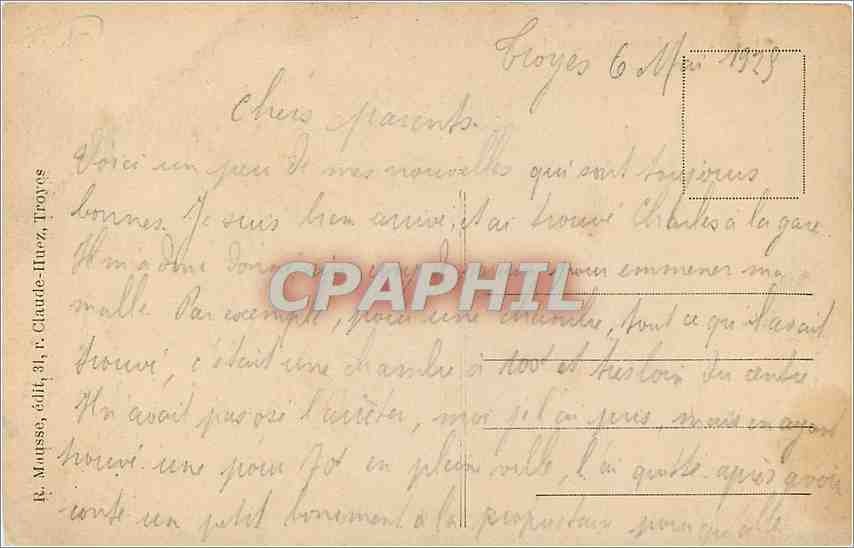 Troyes 6 Mai 1929
Chers parents.
Voici un peu de mes nouvelles qui sont toujours
bonnes. Je suis bien arrivé, et ai trouvé Charles à la gare.
Il m'a donc pour emmener ma
CPAPHIL
malle. Par exemple, pour une chambre, tout ce qu'il avait
trouvé, c'était une chambre à 100f et très loin du centre
Il n'avait pas osé l'arrêter, moi je l'ai pris, mais en ayant
trouvé une pour 70f en pleine ville, l'ai quitté après avoir
conté un petit boniment à la propriétaire pour qu'elle
R. Mousse, édit, 31, r. Claude-Huez, Troyes